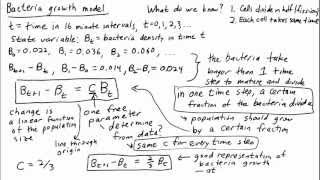 Bacteria growth model
What do we know?
1. Cells divide in half (fission)
2. Each cell takes same time
t = time in 16 minute intervals, t=0,1,2,3...
State variable: Bt = bacteria density in time t
B0 = 0.022, B1 = 0.036, B2 = 0.060, ...
B1-B0 = 0.014, B2-B1 = 0.024
the bacteria take
longer than 1 time
step to mature and divide
in one time step, a certain
fraction of the bacteria divide
Bt+1 - Bt = c Bt
population should grow
by a certain fraction
same c for every time step
change is
a linear function
of the population
size
line through
origin
one free
parameter
determine
from data?
C = 2/3
Bt+1 - Bt = 2/3 Bt
good representation of
bacteria growth